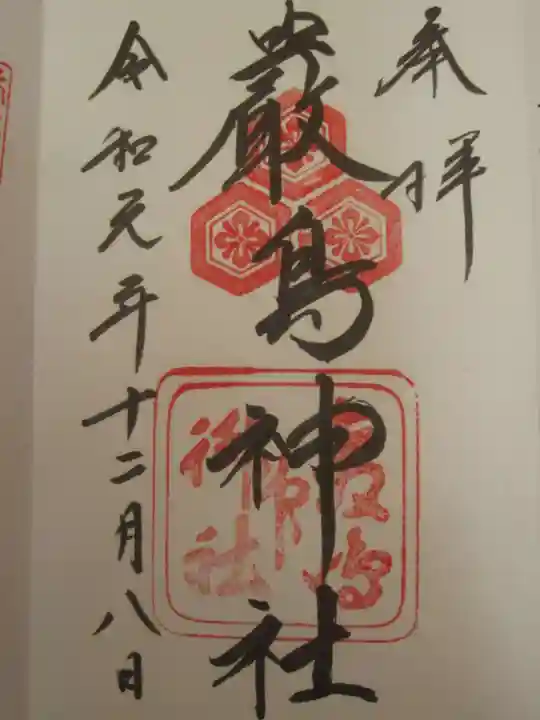 奉拝
厳島神社
令和元年十二月八日
厳嶋
神社